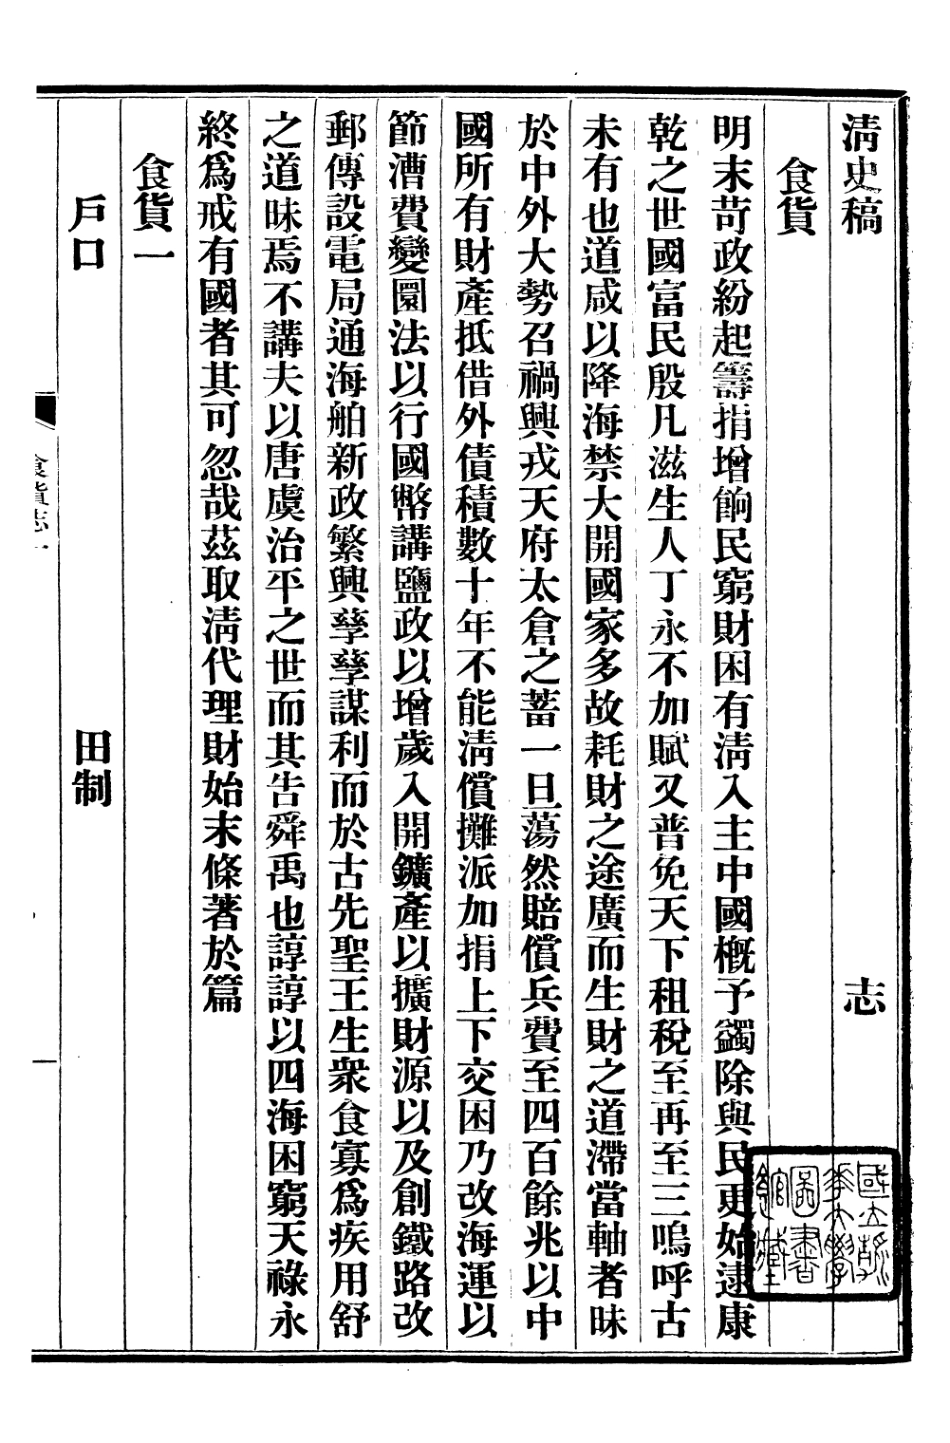 清史稿　志
食貨
明末苛政紛起籌捐增餉民窮財困有清入主中國槪予蠲除與民更始逮康
乾之世國富民殷凡滋生人丁永不加賦又普免天下租稅至再至三嗚呼古
未有也道咸以降海禁大開國家多故耗財之途廣而生財之道滯當軸者昧
於中外大勢召禍興戎天府太倉之蓄一旦蕩然賠償兵費至四百餘兆以中
國所有財產抵借外債積數十年不能清償攤派加捐上下交困乃改海運以
節漕費變圜法以行國幣講鹽政以增歲入開鑛產以擴財源以及創鐵路改
郵傳設電局通海舶新政繁興孳孳謀利而於古先聖王生衆食寡爲疾用舒
之道昧焉不講夫以唐虞治平之世而其告舜禹也諄諄以四海困窮天祿永
終爲戒有國者其可忽哉茲取清代理財始末條著於篇
食貨一
戶口　田制
食貨志一
一
國立清
華大學
圖書
館藏